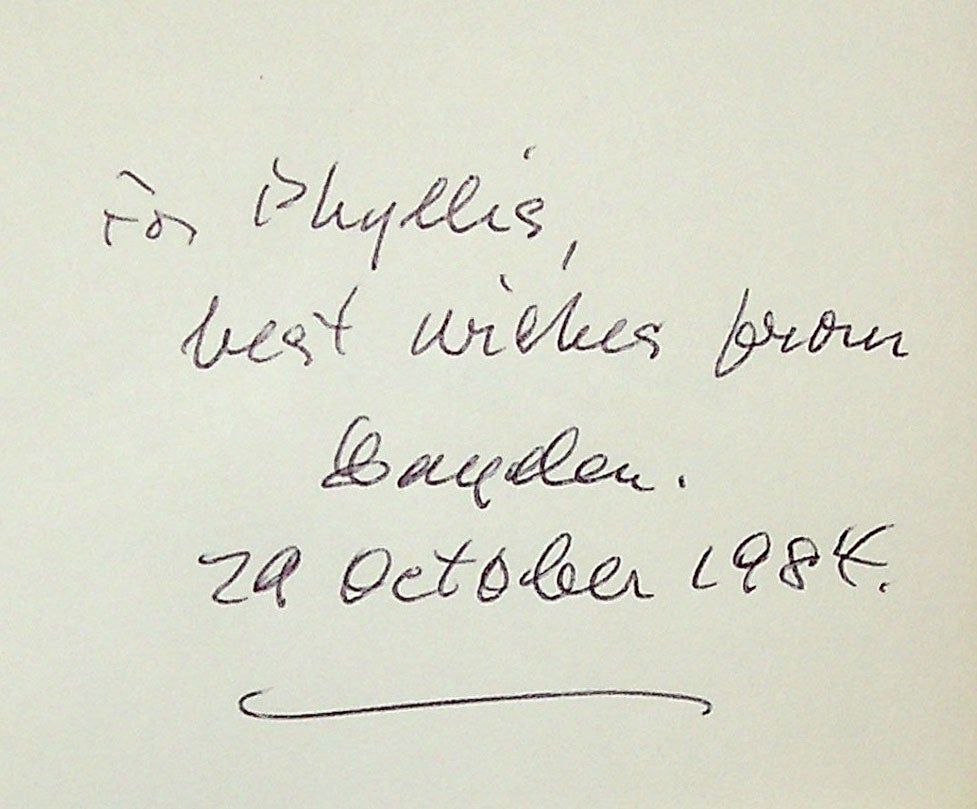 For Phyllis,
best wishes from
29 October 1984.